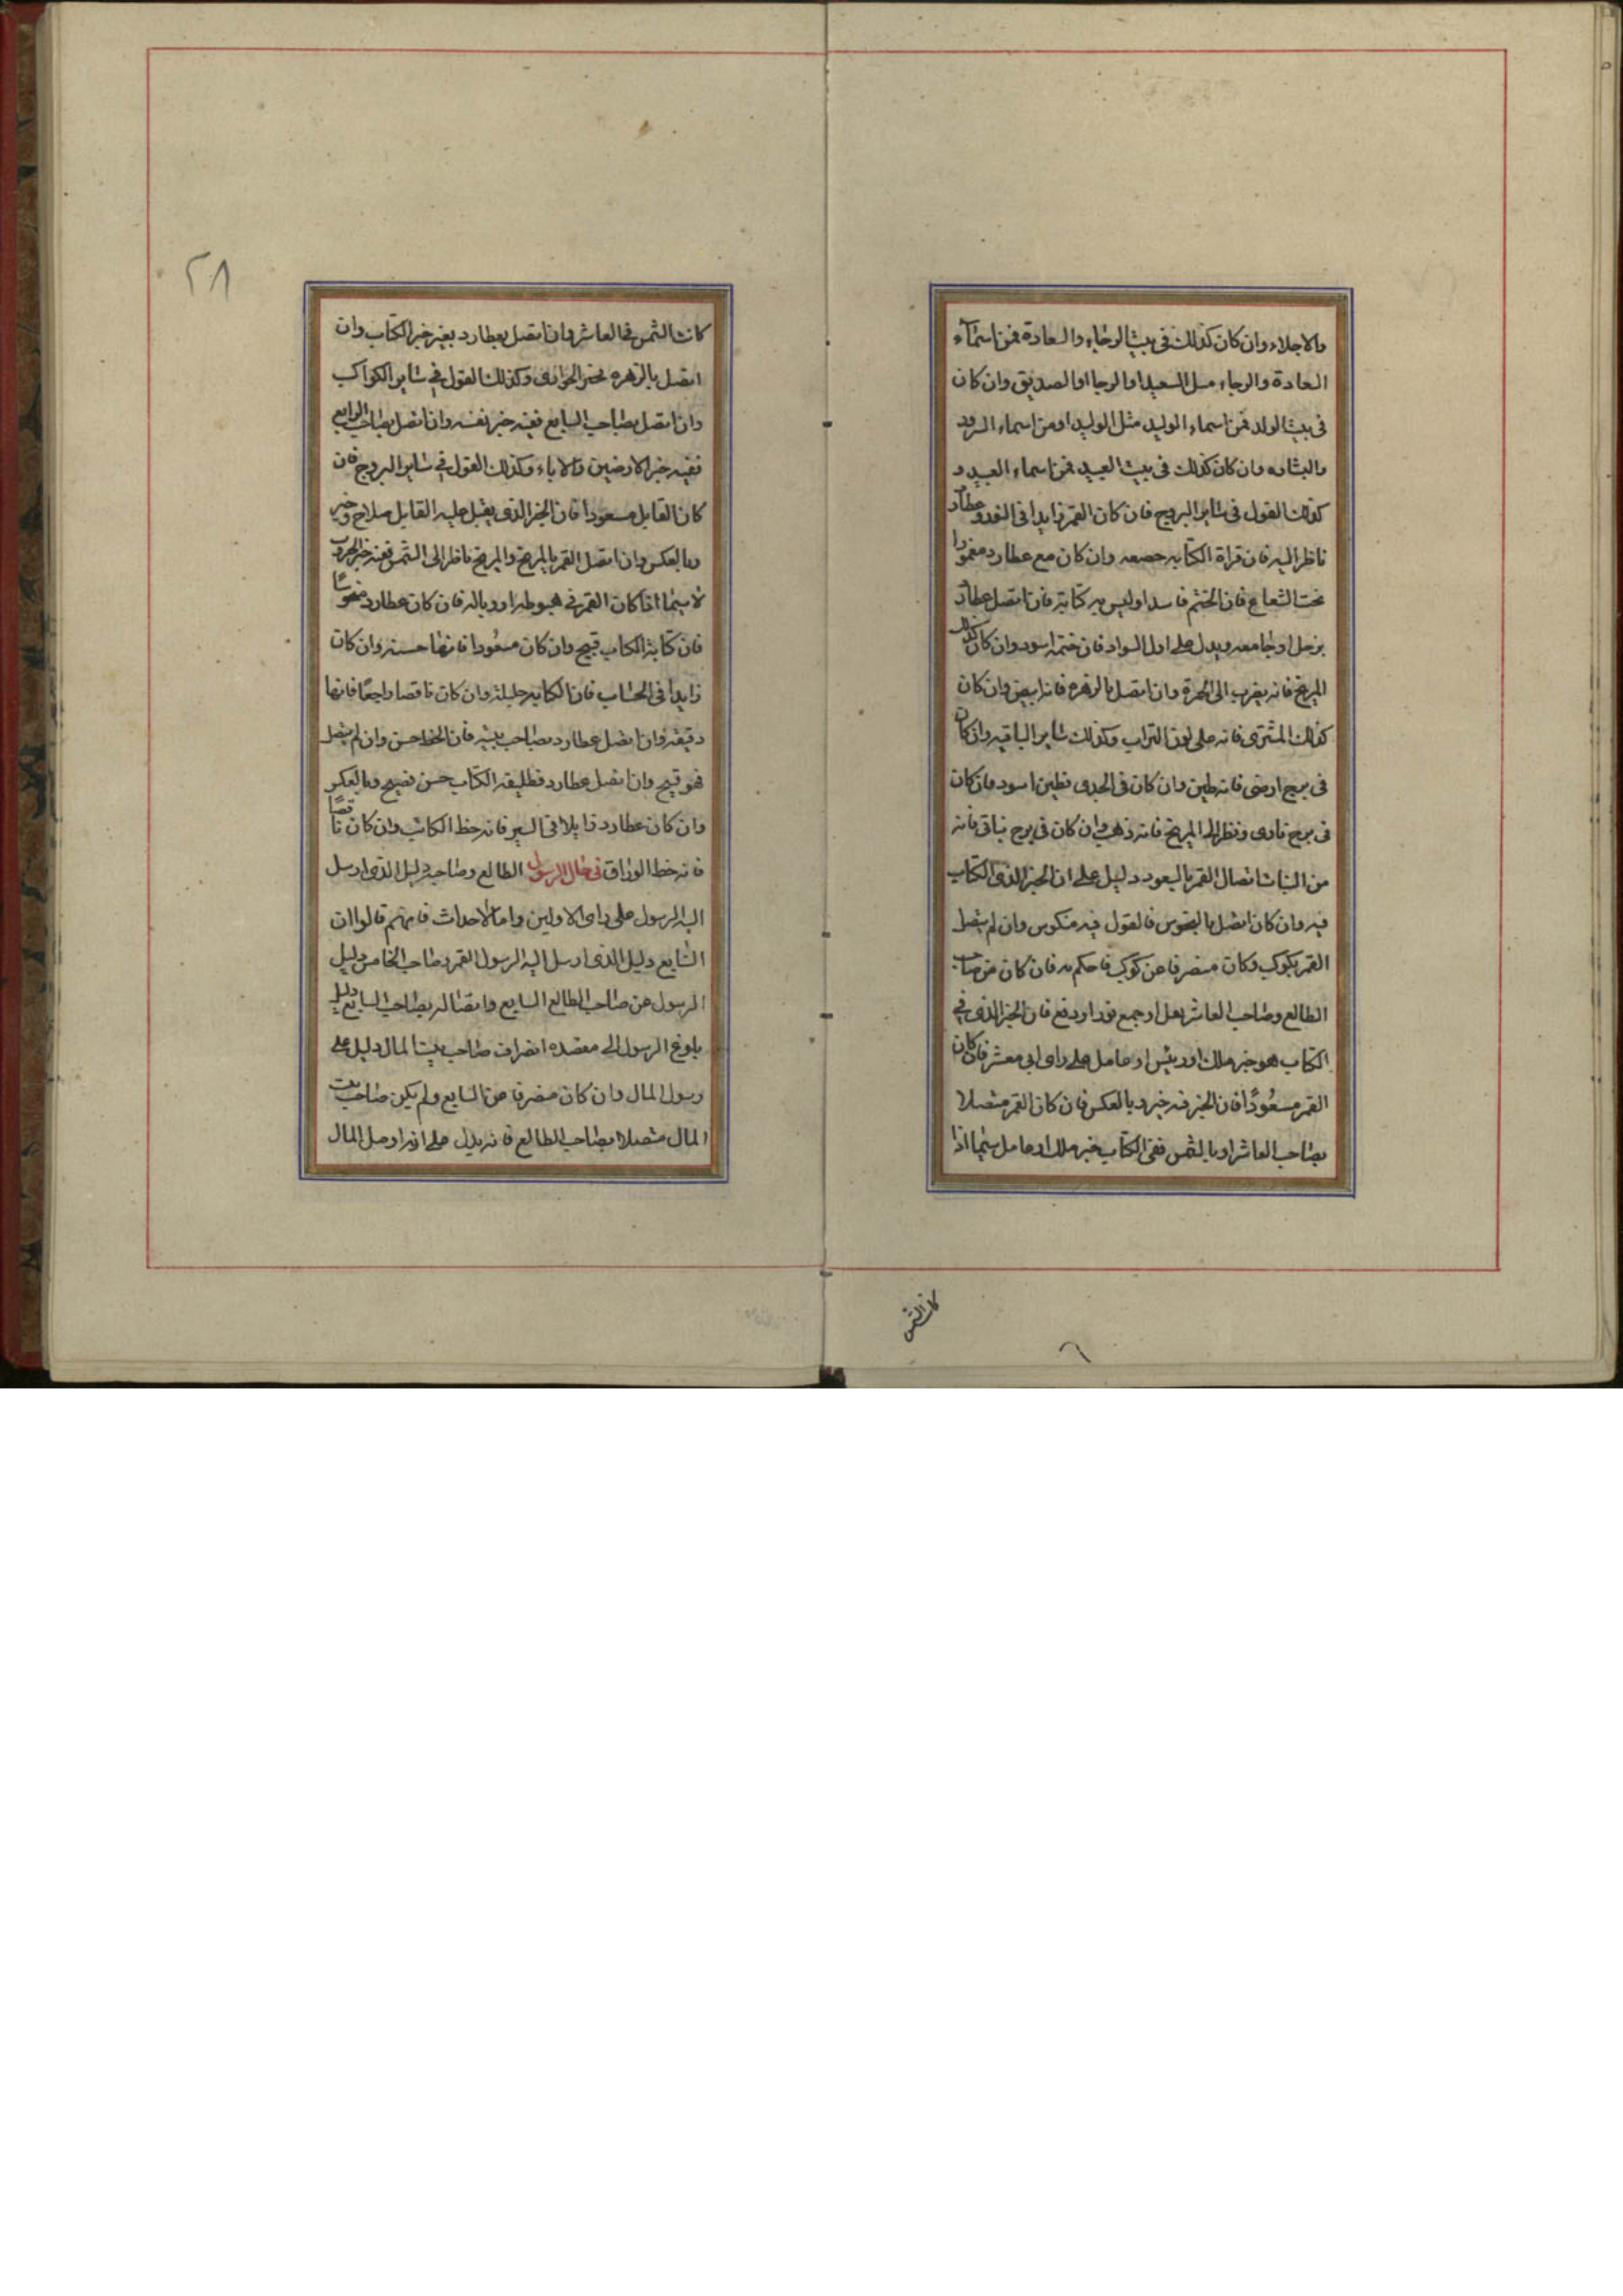 والاجلاء وان كان كذلك فى بيت الرجاء والسعادة فمن اسماء
السعادة والرجاء مثل السعيد او الرجا او الصديق وان كان
فى بيت الولد فمن اسماء الوليد مثل الوليد او من اسماء السرور
والبشاره وان كان كذلك فى بيت العبيد فمن اسماء العبيد و
كذلك القول فى ساير البروج فان كان القمر زايدا فى النور وعطارد
ناظر اليه فان قراة الكتابه وان كان مع عطارد مغمورا
تحت الشعاع فان الختم فاسد او ليس به كتابة فان اتصل عطارد
بزحل او جامعه ويدل على اول السواد فان ختمه اسود وان كان كذلك
المريخ فانه يضرب الى الحمرة وان اتصل بالزهره فانه ابيض وان كان
كذلك المشترى فانه على لون التراب وكذلك ساير الباقيه وان كان
فى برج ارضى فانه طين وان كان فى الجدى فطين اسود فان كان
فى برج نارى ونظر اليه المريخ فانه ذهب وان كان فى برج نباتى فانه
من النبات اتصال القمر بالسعود دليل على ان الخبر الذى الكتاب
فيه وان كان اتصل بالنحوس فالقول فيه منكوس وان لم يتصل
القمر بكوكب وكان منصرفا عن كوكب فاحكم به فان كان من صاحب
الطالع وصاحب العاشر نقل او جمع نور او دفع فان الخبر الذى فى
الكتاب هو خبر ملك او رئيس او عامل على راى ابى معشر فان كان
القمر مسعودًا فان الخبر فيه خير وبالعكس فان كان القمر متصلا
بصاحب العاشر او بالشمس ففى الكتاب خبر ملك او عامل سيما اذا
كانت الشمس
٢٨
كانت الشمس فى العاشر وان اتصل بعطارد بغير خبر الكتاب وان
اتصل بالزهره فخبر الجوارى وكذلك القول فى ساير الكواكب
وان اتصل بصاحب السابع ففيه خبر نفسه وان اتصل بصاحب الرابع
ففيه خبر الارضين والاباء وكذلك القول فى ساير البروج فان
كان القابل مسعودا فان الخبر الذى يقبل عليه القابل صلاح وخير
وبالعكس وان اتصل القمر بالمريخ والمريخ ناظر الى الشمس ففيه خبر الحروب
لا سيما اذا كان القمر فى هبوطه او وباله فان كان عطارد منحوسًا
فان كتابة الكتاب قبيح وان كان مسعودا فانها حسنه وان كان
زايدا فى الحساب فان الكتابه جليلة وان كان ناقصا راجعًا فانها
دقيقه وان اتصل عطارد بصاحب بيته فان الخط حسن وان لم يتصل
فهو قبيح وان اتصل عطارد الكتاب حسن فصيح وبالعكس
وان كان عطارد زايلا فى السير فانه خط الكاتب وان كان ناقصًا
فانه خط الوراق فى حال الرسول الطالع وصاحبه دليل الذى ارسل
اليه الرسول على راى الاولين واما الاحداث فانهم قالوا ان
السابع دليل الذى ارسل اليه الرسول القمر وصاحب الخامس دليل
الرسول عن صاحب الطالع السابع واتصاله بصاحب السابع دليل
بلوغ الرسول الى مقصده انصراف صاحب بيت المال دليل على
رسول المال وان كان منصرفا عن السابع ولم يكن صاحب بيت
المال متصلا بصاحب الطالع فانه يدل على انه اوصل المال